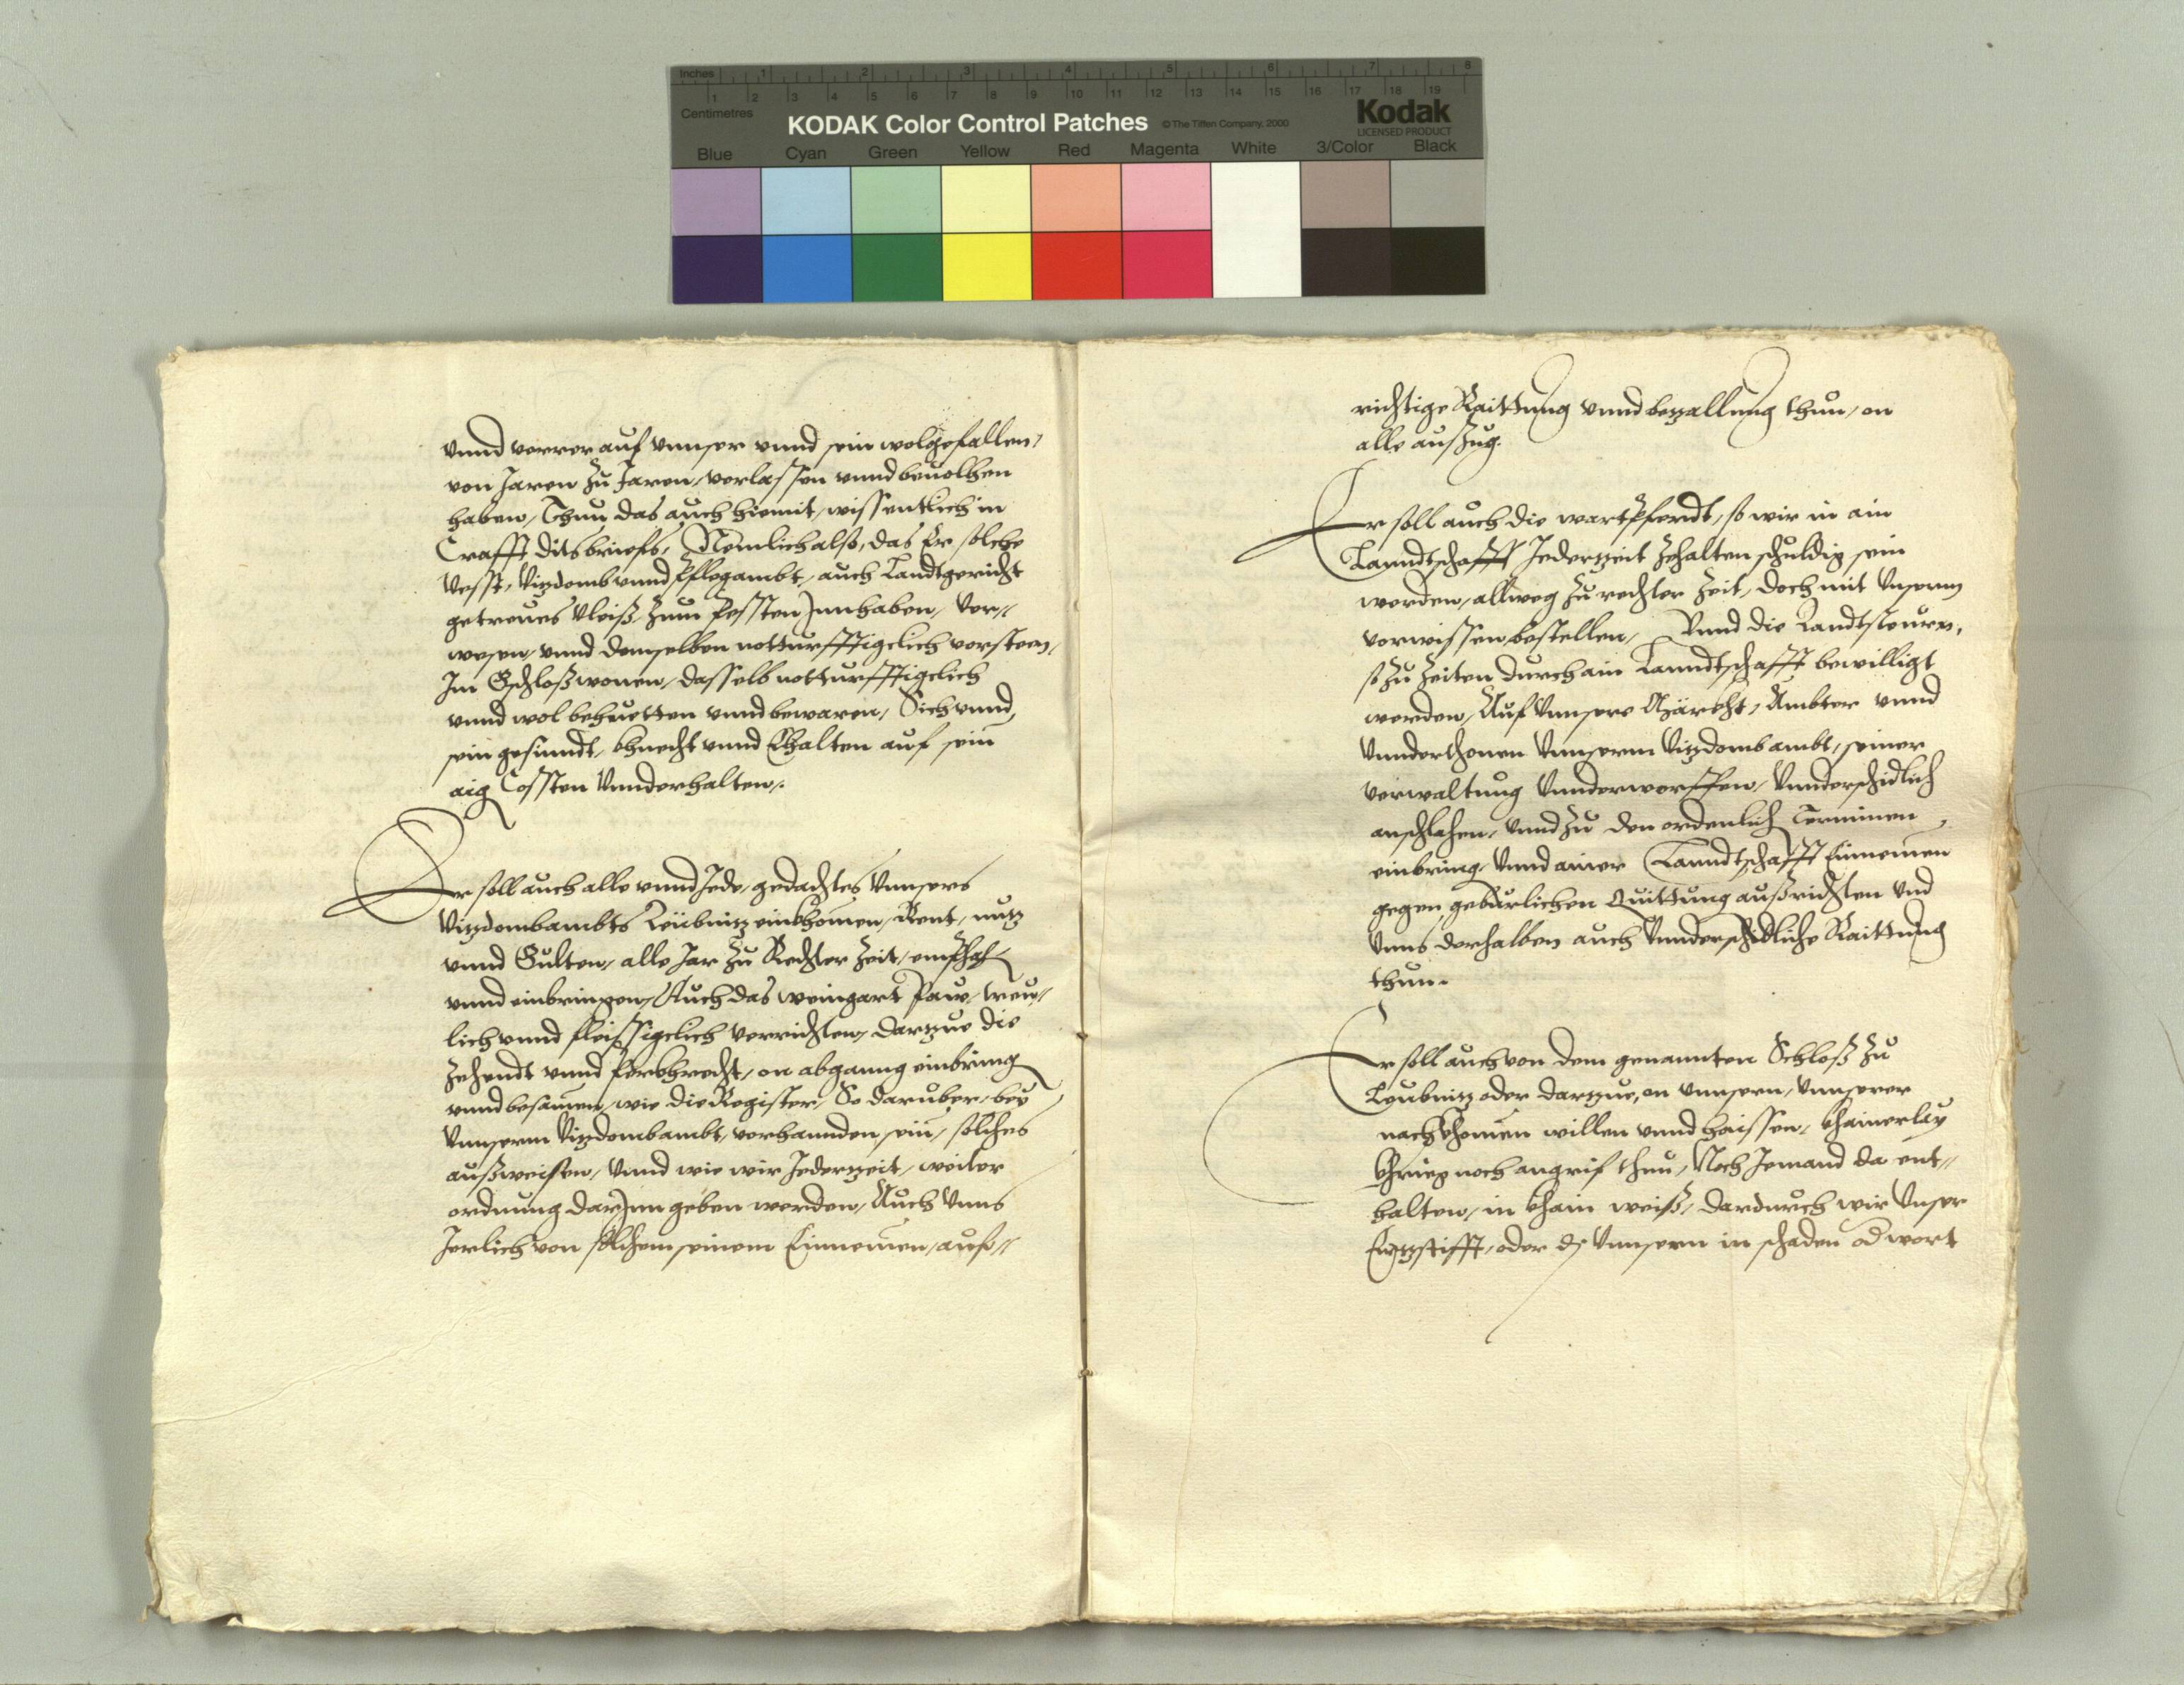 Inches 1 2 3 4 5 6 7 8
Centimetres 1 2 3 4 5 6 7 8 9 10 11 12 13 14 15 16 17 18 19
KODAK Color Control Patches © The Tiffen Company, 2000 Kodak
LICENSED PRODUCT
Blue Cyan Green Yellow Red Magenta White 3/Color Black
vnnd verrer auf vnnser vnnd sein wolgefallen,
von Jaren zu Jaren, verlassen vnnd beuolhen
haben, Thun das auch hiemit, wissentlich in
Crafft dits briefs, Nemlich also, das Er solche
Vesst, Vizdomb vnnd Pflegambt, auch Landtgericht
getreues vleiß zum Pessten Innhaben, Ver//
wesen, vnnd demselben notturfftigclich vorsteen,
Im Gschloß wonen, dasselb notturfftigclich
vnnd wol behuetten vnnd bewaren, Sich vnnd
sein gesinndt, khnecht vnnd Ehalten auf sein
aig Cossten Vnnderhalten.
Er soll auch alle vnnd Jede, gedachtes Vnnsers
Vizdombambts Leübnitz einkhomen, Rent, nutz
vnnd Gülten, alle Jar zu Rechter Zeit,
vnnd einbringen, Auch das weingart Paw, treu//
lich vnnd fleissigclich verrichten, dartzue die
Zehendt vnnd Perkhrecht, on abganng einbring
vnnd besamen, wie die Register, So darüber, bey
Vnnserm Vizdombambt, verhannden sein, solches
außweisen, Vnnd wie wir Jederzeit, weiter
ordnung darInn geben werden, Auch Vnns
Jerlich von solchem seinem Einnemen, auf//
richtige Raittung vnnd bezallung thun, on
alle außzug.
Er soll auch die wartPferdt, so wir in ain
Lanndtschafft Jederzeit zehalten schuldig sein
werden, allweg zu rechter Zeit, doch mit Vnserm
vorwissen bestellen, Vnnd die Landtsteurn,
so zu Zeiten durch ain Lanndtschafft bewilligt
werden, Auf Vnnsere Märkht, Ambter vnnd
Vnnderthonen Vnnserm Vizdombambt, seiner
verwaltung Vnnderworffen, Vnnderschidlich
anschlahen, Vnnd zu den ordenlich Terminen
einbring, Vnnd ainer Lanndtschafft Einnemen
gegen gebürlichen Quittung außrichten Vnd
Vnns derhalben auch Vnnderschidliche Raittung
thun.
Er soll auch von dem genannten Schloß zu
Leubnitz oder dartzue, on vnnsern, Vnnserer
nachkhomen willen vnnd haissen, khainerlay
khrieg noch angrif thun, Noch Jemand da ent//
halten, in khain weiß, dardurch wir Vnser
Ertzstifft, oder die Vnnsern in schaden od wort